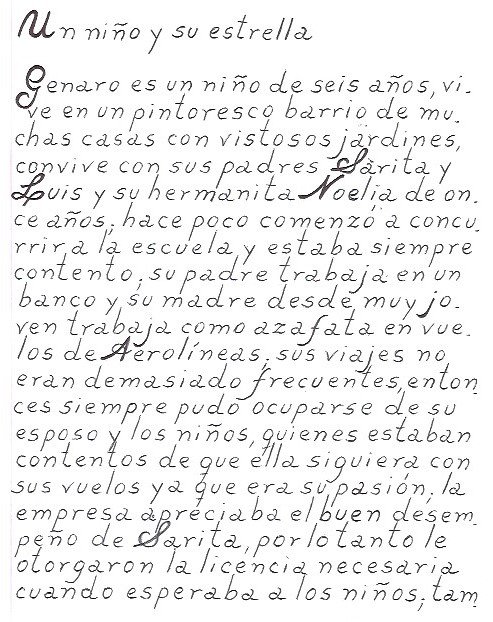 Un niño y su estrella
Genaro es un niño de seis años, vi-
ve en un pintoresco barrio de mu-
chas casas con vistosos jardines,
convive con sus padres Sarita y
Luis y su hermanita Noelia de on-
ce años; hace poco comenzó a concu-
rrir a la escuela y estaba siempre
contento; su padre trabaja en un
banco y su madre desde muy jo-
ven trabaja como azafata en vue-
los de Aerolíneas; sus viajes no
eran demasiado frecuentes, enton-
ces siempre pudo ocuparse de su
esposo y los niños, quienes estaban
contentos de que ella siguiera con
sus vuelos ya que era su pasión, la
empresa apreciaba el buen desem-
peño de Sarita, por lo tanto le
otorgaron la licencia necesaria
cuando esperaba a los niños; tam-